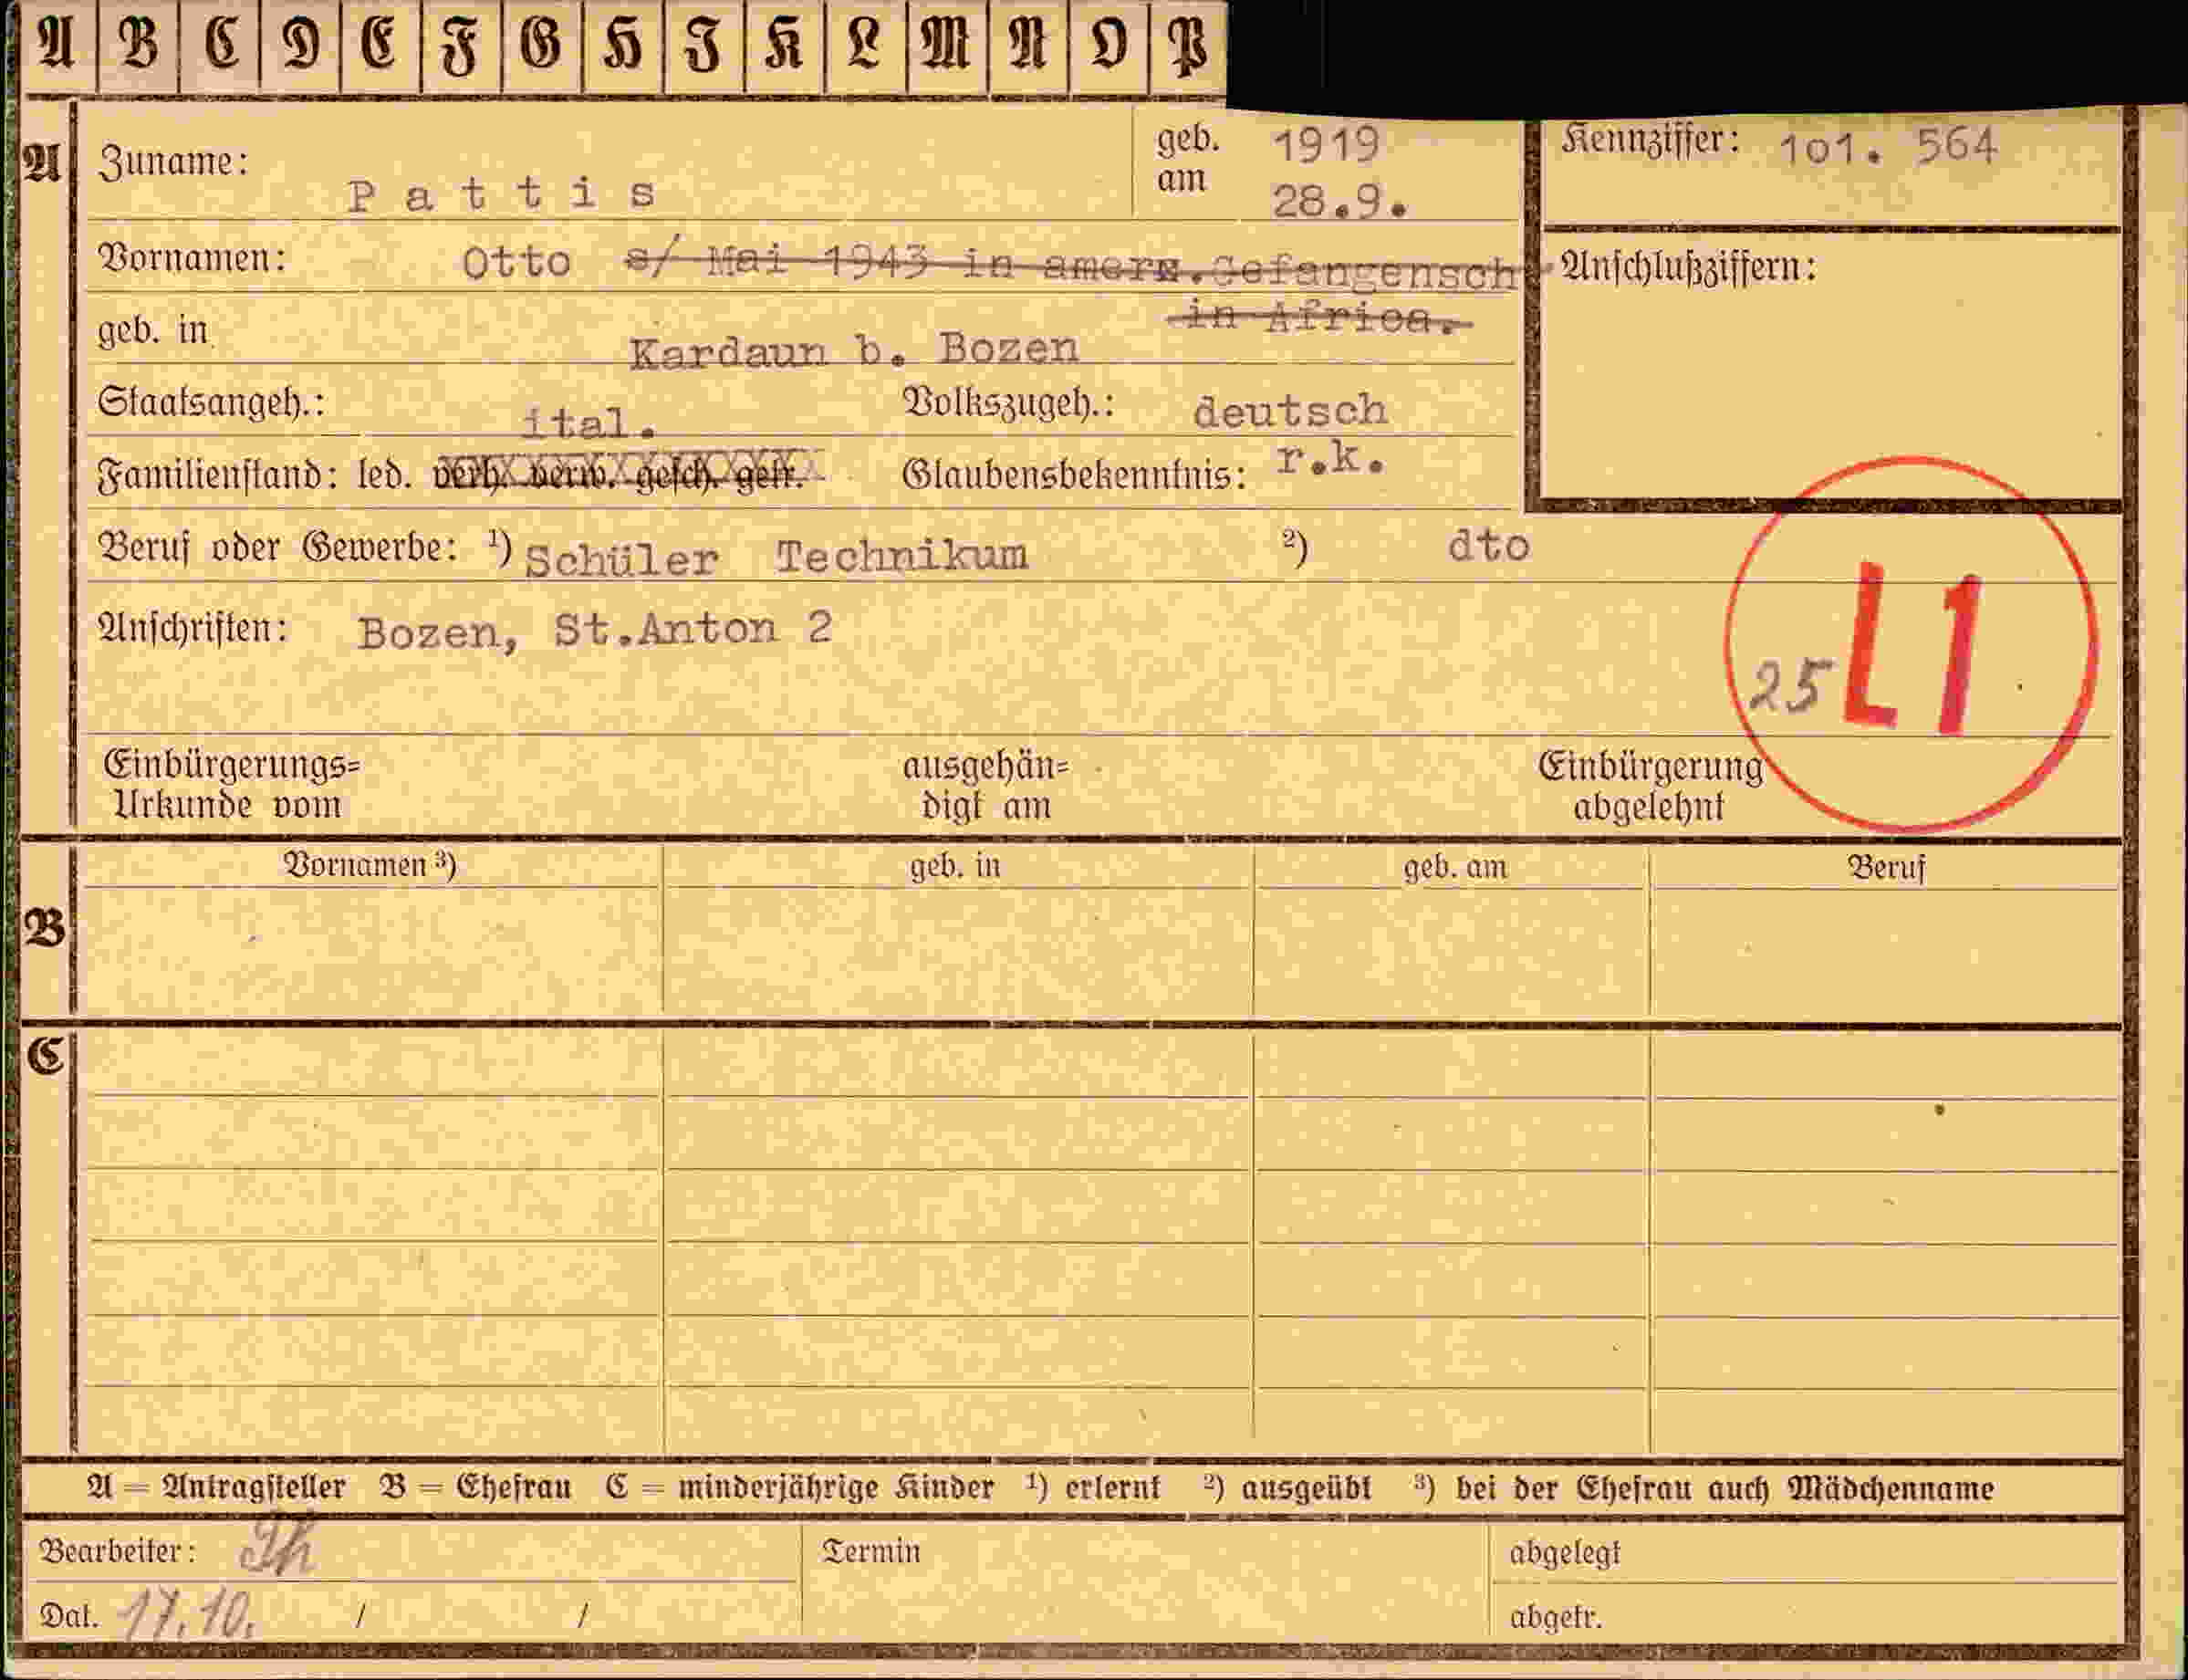 A B C D E F G H J K L M N O P
A Zuname: Pattis geb. am 1919 28.9. Kennziffer: 101. 564
Vornamen: Otto s/ Mai 1943 in amern.Gefangensch in Africa. Anschlußziffern:
geb. in Kardaun b. Bozen
Staatsangeh.: ital. Volkszugeh.: deutsch
Familienstand: led. verh. verw. gesch. getr. Glaubensbekenntnis: r.k.
Beruf oder Gewerbe: ¹) Schüler Technikum ²) dto
Anschriften: Bozen, St.Anton 2
25 L1
Einbürgerungs= ausgehän= Einbürgerung
Urkunde vom digt am abgelehnt
Vornamen ³) geb. in geb. am Beruf
B
C
A = Antragsteller B = Ehefrau C = minderjährige Kinder ¹) erlernt ²) ausgeübt ³) bei der Ehefrau auch Mädchenname
Bearbeiter: Th Termin abgelegt
Dat. 17.10. / / abgetr.